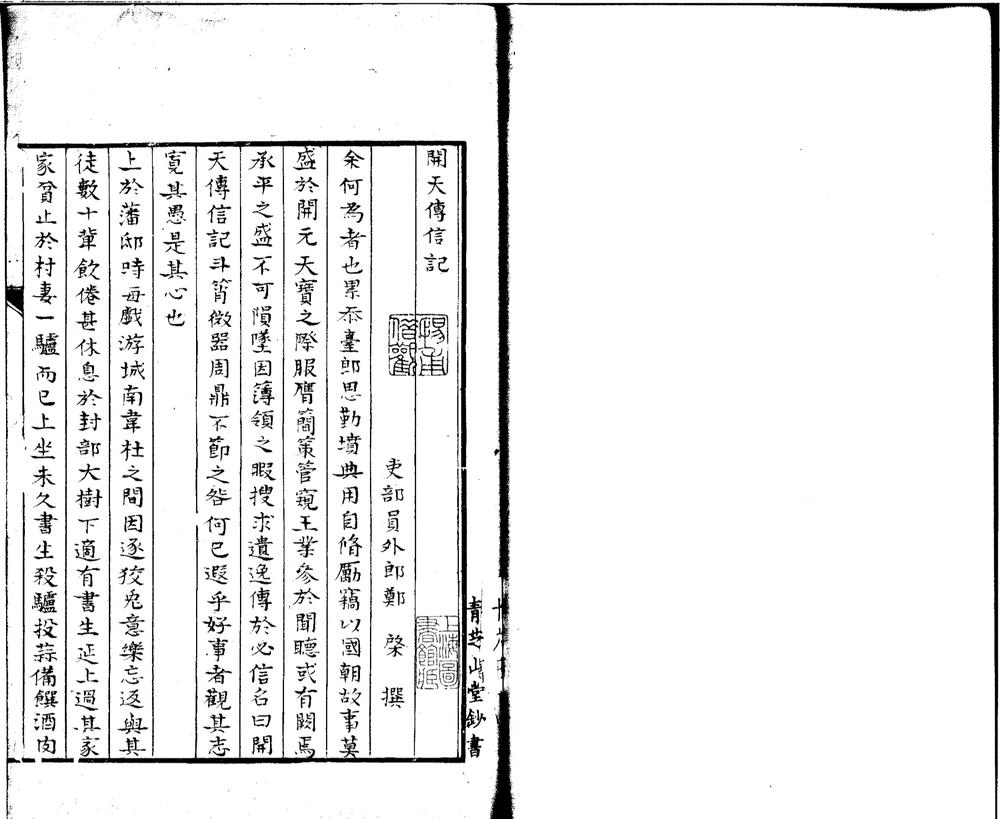 開天傳信記
吏部員外郎鄭 棨 撰
余何為者也累忝臺郎思勤墳典用自脩勵竊以國朝故事莫
盛於開元天寶之際服膺簡策管窺王業參於聞聽或有闕焉
承平之盛不可隕墜因簿領之暇搜求遺逸傳於必信名曰開
天傳信記斗筲微器周鼎不節之咎何已遐乎好事者觀其志
寬其愚是其心也
上於藩邸時每戲游城南韋杜之間因逐狡兔意樂忘返與其
徒數十輩飲倦甚休息於封部大樹下適有書生延上過其家
家貧止於村妻一驢而已上坐未久書生殺驢投蒜備饌酒肉
青芝山堂鈔書
上海圖書館藏